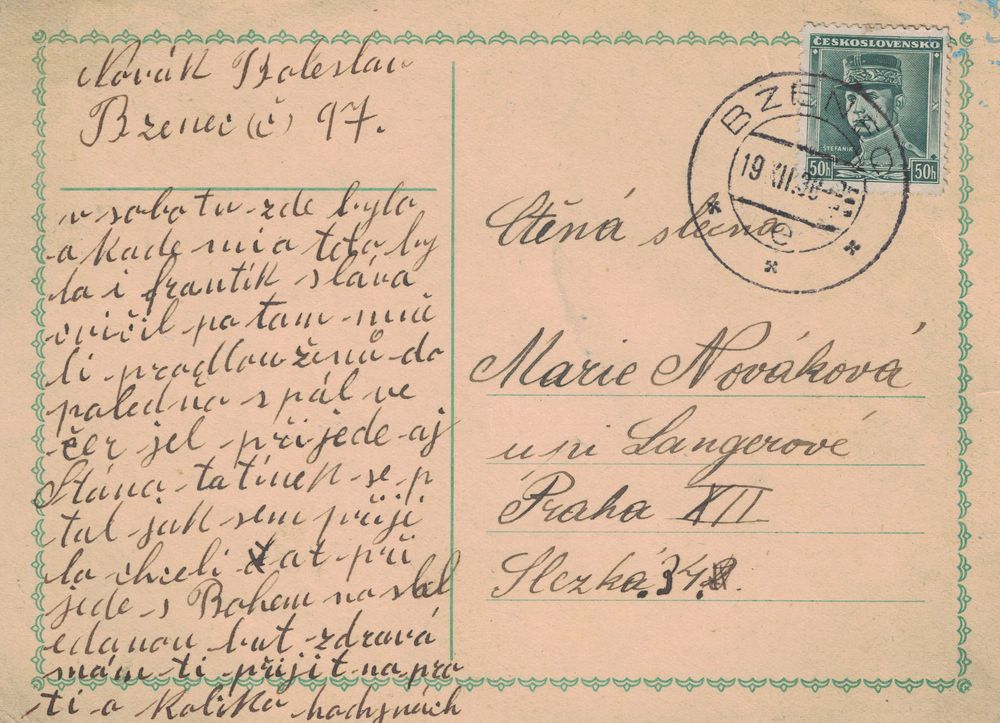 Novák Boleslav
Bzenec (č) 97.
v sobotu zde byla
a kade mia tota by
la i frantík sláva
cvičil potam mně
li prodlouženů do
poledňa spál ve
čer jel přijede aj
Stána tatínek se p
tal jak sem přiji
la chceli tat při
jede s Bohem na
edanou buť zdravá
mám ti přijit na pro
ti o kolika hodynách
ČESKOSLOVENSKO
ŠTEFÁNIK
50h 50h
BZENEC
19 XII 36
e
Ctěná slečna
Marie Nováková
u pí Langerové
Praha XII
Slezká 34.